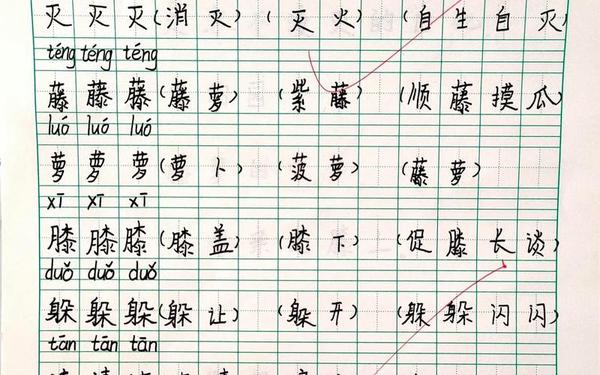 灭 灭 灭 (消 灭) (灭 火) (自 生 自 灭)
téng téng téng
藤 藤 藤 (藤 萝) (紫 藤) (顺 藤 摸 瓜)
luó luó luó
萝 萝 萝 (萝 卜) (菠 萝) (藤 萝)
xī xī xī
膝 膝 膝 (膝 盖) (膝 下) (促 膝 长 谈)
duǒ duǒ duǒ
躲 躲 躲 (躲 让) (躲 开) (躲 躲 闪 闪)
tān tān tān